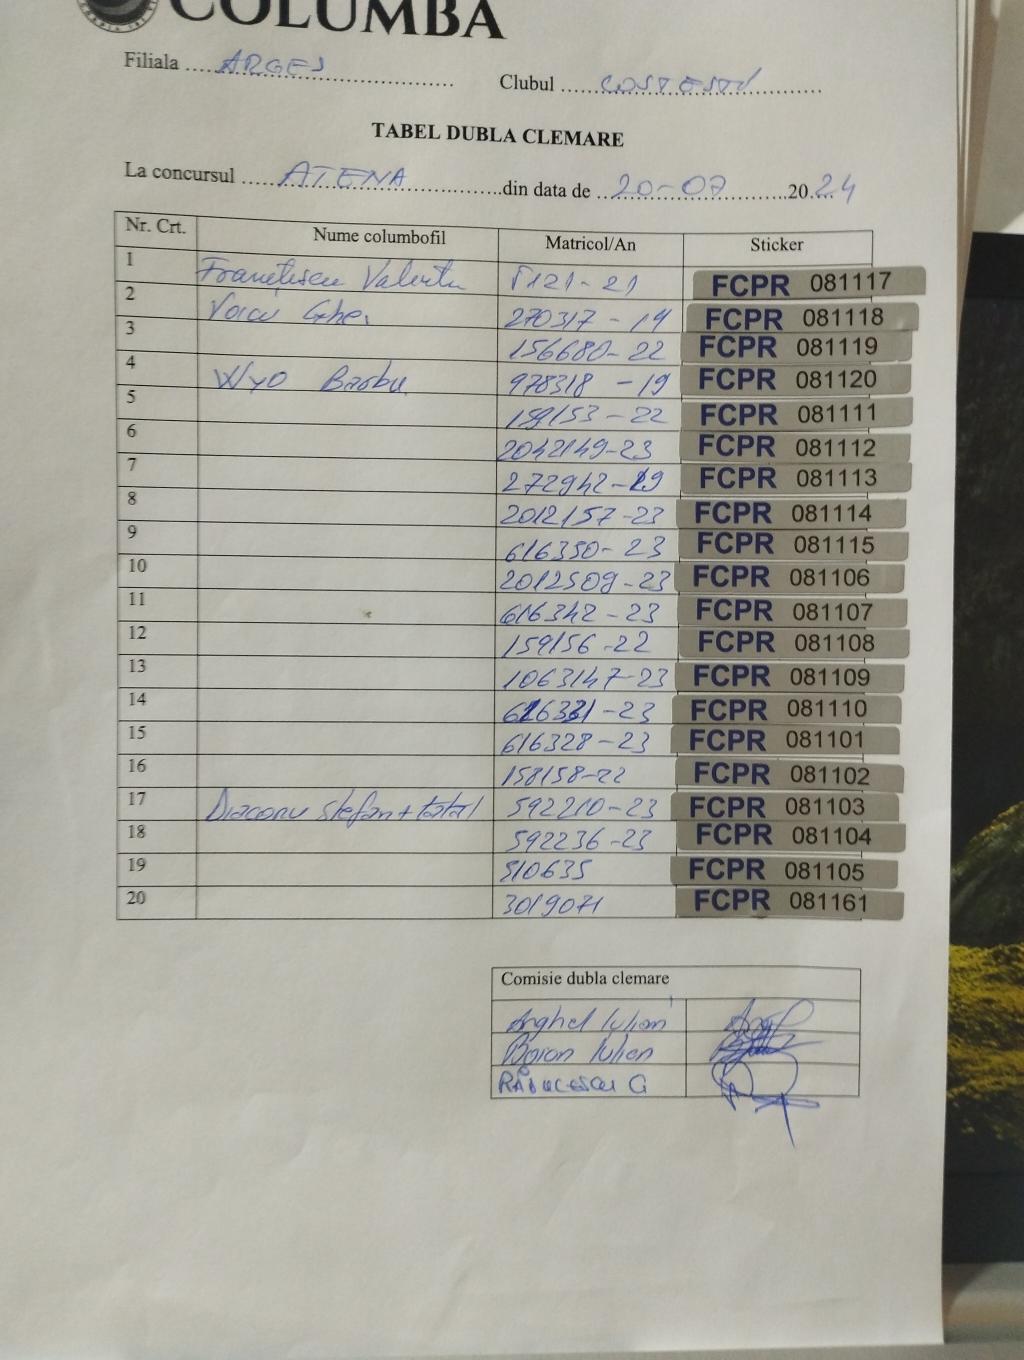 COLUMBA
Filiala ARGES Clubul COSTESTI
TABEL DUBLA CLEMARE
La concursul ATENA din data de 20-07 2024
Nr. Crt. Nume columbofil Matricol/An Sticker
1 Valentin 5121-21 FCPR 081117
2 Voicu Ghe. 270317-19 FCPR 081118
3 156680-22 FCPR 081119
4 WYO Barbu 978318-19 FCPR 081120
5 159153-22 FCPR 081111
6 2042149-23 FCPR 081112
7 272942-19 FCPR 081113
8 2012157-23 FCPR 081114
9 616350-23 FCPR 081115
10 2012509-23 FCPR 081106
11 616342-23 FCPR 081107
12 159156-22 FCPR 081108
13 1063147-23 FCPR 081109
14 616331-23 FCPR 081110
15 616328-23 FCPR 081101
16 158158-22 FCPR 081102
17 Diaconu Stefan+tatal 592210-23 FCPR 081103
18 592236-23 FCPR 081104
19 510635 FCPR 081105
20 3019071 FCPR 081161
Comisie dubla clemare
Anghel Iulian
Boian Iulian
RĂDUCESCU G